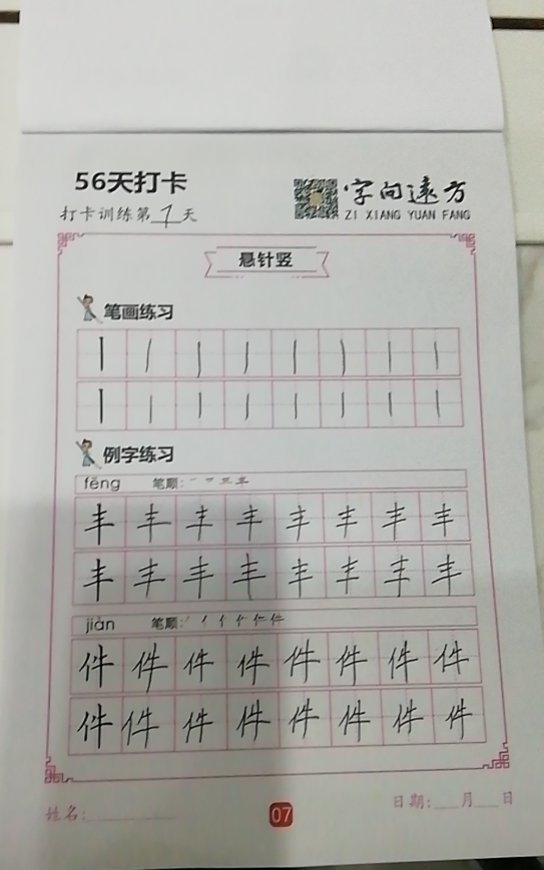 56天打卡
打卡训练第7天
字向远方
ZI XIANG YUAN FANG
悬针竖
笔画练习
例字练习
fēng 笔顺:一 二 三 丰
丰 丰 丰 丰 丰 丰 丰 丰
丰 丰 丰 丰 丰 丰 丰 丰
jiàn 笔顺:
件 件 件 件 件 件 件 件
件 件 件 件 件 件 件 件
姓名:
07
日期: 月 日